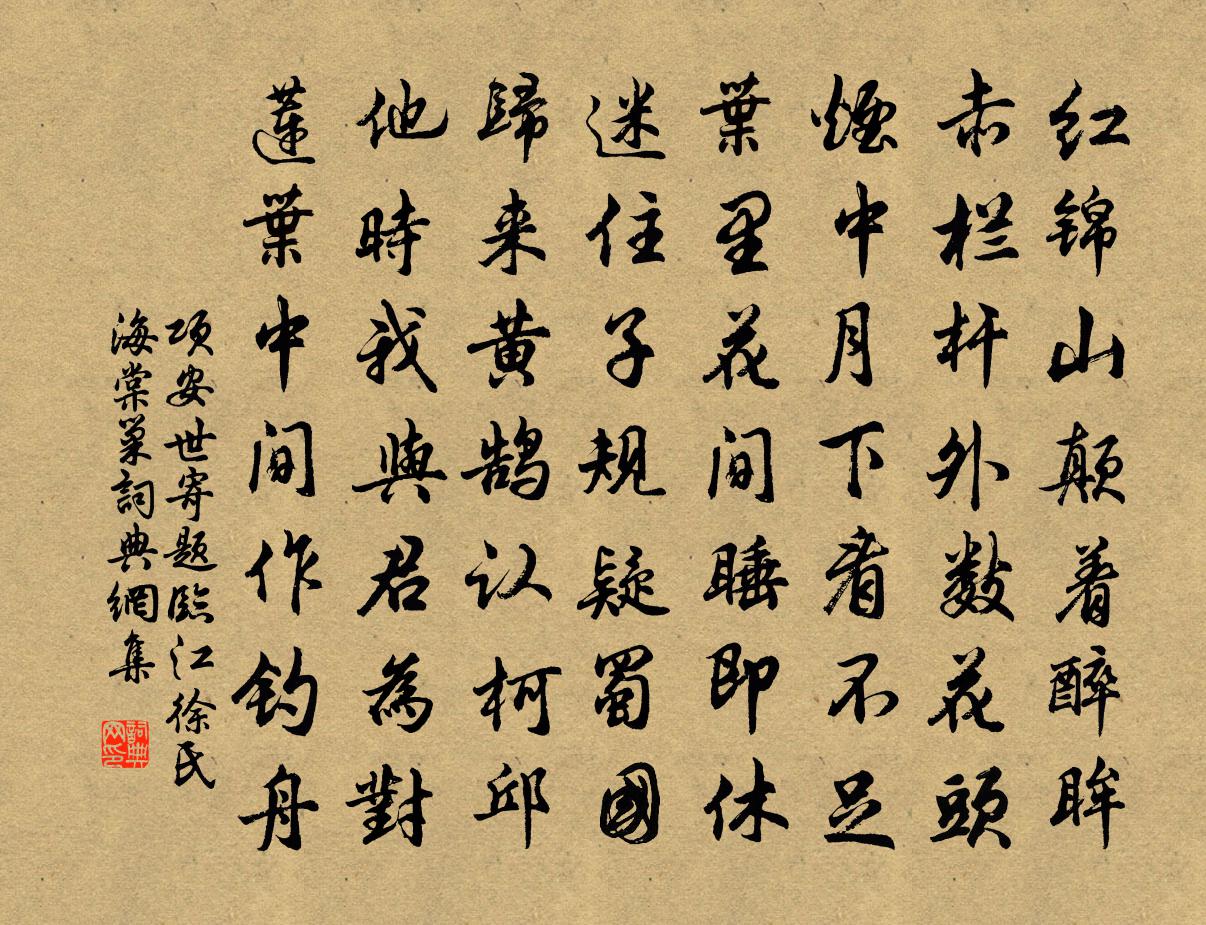 红锦山颠着醉眸
赤栏杆外数花头
煙中月下看不足
葉里花间睡即休
迷住子规疑蜀國
歸来黄鹄认柯邱
他時我與君為對
蓮葉中间作钓舟
项安世寄题臨江徐氏
海棠巢詞典網集
詞典
网印